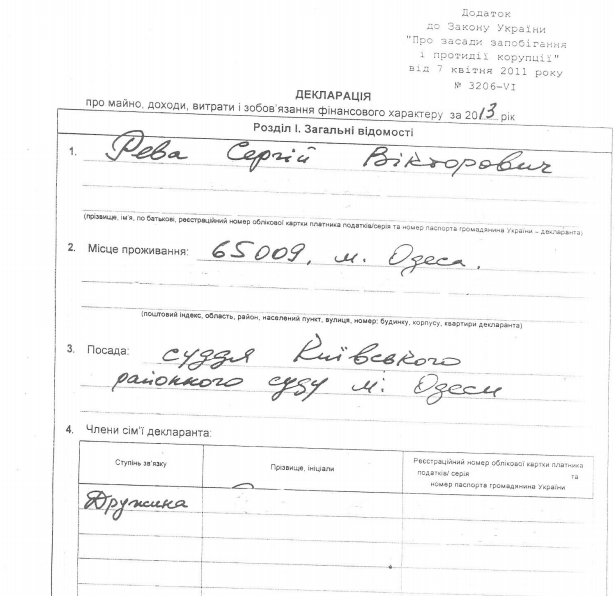 Додаток
до Закону України
"Про засади запобігання
і протидії корупції"
від 7 квітня 2011 року
№ 3206-VI
ДЕКЛАРАЦІЯ
про майно, доходи, витрати і зобов'язання фінансового характеру за 2013 рік
Розділ І. Загальні відомості
1. Рева Сергій Вікторович
(прізвище, ім'я, по батькові, реєстраційний номер облікової картки платника податків/серія та номер паспорта громадянина України – декларанта)
2. Місце проживання: 65009, м. Одеса.
(поштовий індекс, область, район, населений пункт, вулиця, номер: будинку, корпусу, квартири декларанта)
3. Посада: суддя Київського
районного суду м. Одеси
4. Члени сім'ї декларанта:
Ступінь зв'язку
Прізвище, ініціали
Реєстраційний номер облікової картки платника
податків/ серія та
номер паспорта громадянина України
Дружина